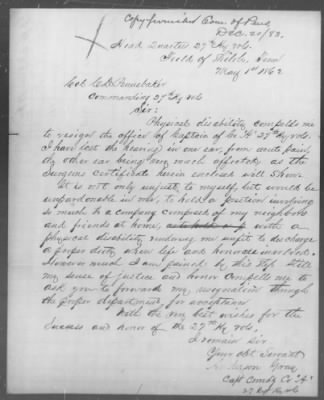 Copy furnished Com. of Pens
Dec. 20/82.
Head Quarters 27th Ky Vols.
Field of Shiloh, Tenn
May 1st 1862
Col C. D. Pennebaker
Commanding 27th Ky Vols
Sir:
Physical disability compells me
to resign the office of Captain of Co A 27th Ky Vols.
I have lost the hearing in one ear, from acute pain,
the other ear being very much affected as the
Surgeons certificate herein enclosed will show.
It is not only unjust to myself, but would be
unpardonable in me, to hold a position involving
so much to a company composed of my neighbors
and friends at home, with a
physical disability rendering me unfit to discharge
a proper duty when life and honor are involved.
However much I am pained by this step still
my sense of justice and honor compells me to
ask you to forward my resignation through
the proper department for acceptance
With the very best wishes for the
success and honor of the 27th Ky Vols.
I remain Sir
Your obt Servant
Anderson Gray
Capt Comdg Co "A"
27 Ky Vols